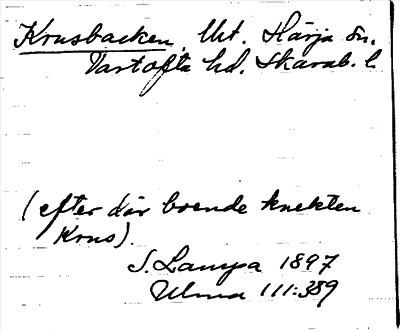 Krusbacken, Ut. Härja sn.
Vartofta hd. Skarab. l.
(efter där boende knekten
Krus).
S. Lampa 1897
Ulma 111:389